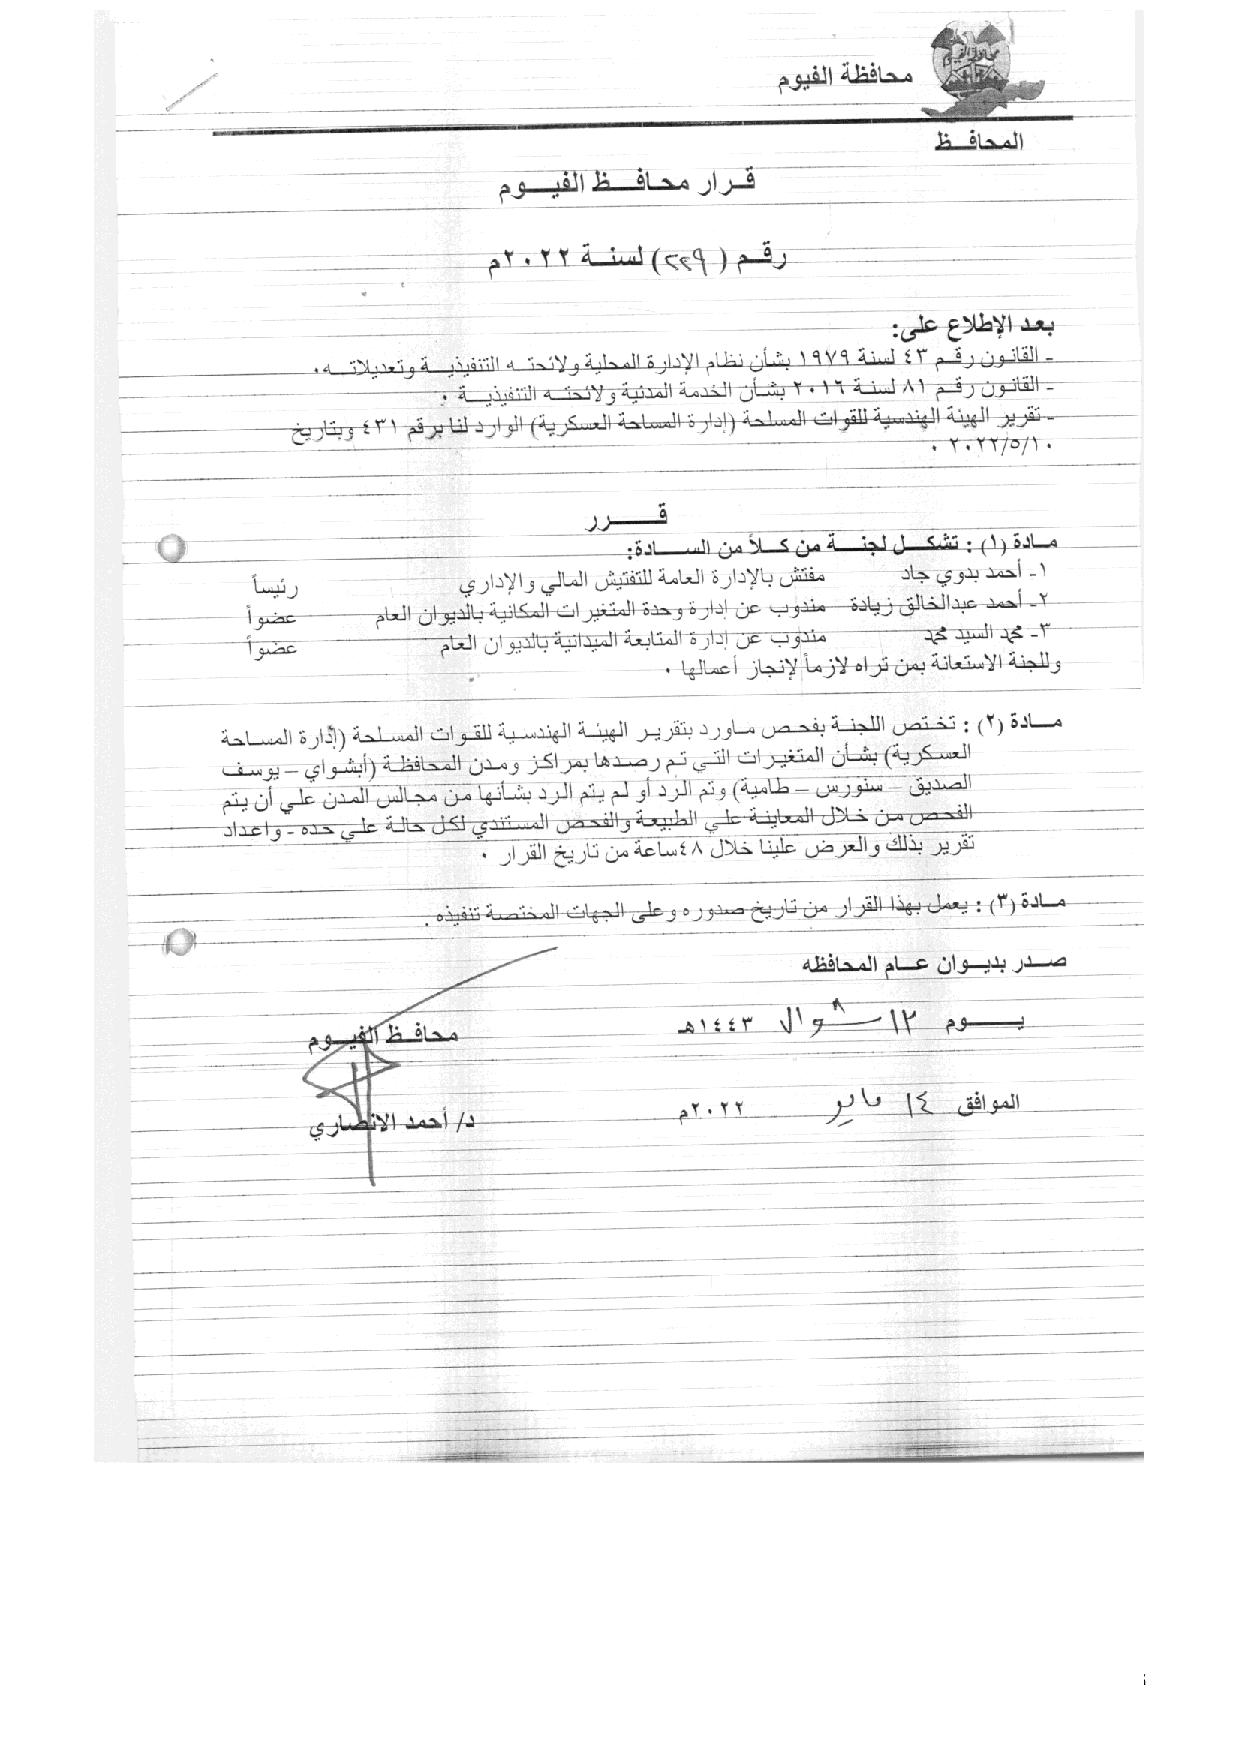 محافظة الفيوم
المحافـــظ
قـرار محافـــظ الفيـــوم
رقـم (٢٢٩) لسنـة ٢٠٢٢م
بعد الإطلاع على:
- القانون رقـم ٤٣ لسنة ١٩٧٩ بشأن نظام الإدارة المحلية ولائحتـه التنفيذيـة وتعديلاتـه.
- القانون رقـم ٨١ لسنـة ٢٠١٦ بشأن الخدمة المدنية ولائحتـه التنفيذيـة .
- تقرير الهيئة الهندسية للقوات المسلحة (إدارة المساحة العسكرية) الوارد لنا برقم ٤٣١ وبتاريخ
٢٠٢٢/٥/١٠ .
قـــرر
مـادة (١) : تشكـــل لجنـــة من كـلاً من الســـادة:
١- أحمد بدوي جاد مفتش بالإدارة العامة للتفتيش المالي والإداري رئيساً
٢- أحمد عبدالخالق زيادة مندوب عن إدارة وحدة المتغيرات المكانية بالديوان العام عضواً
٣- محمد السيد محمد مندوب عن إدارة المتابعة الميدانية بالديوان العام عضواً
وللجنة الاستعانة بمن تراه لازماً لإنجاز أعمالها .
مـــادة (٢) : تختص اللجنـة بفحص مـاورد بتقريـر الهيئـة الهندسـية للقـوات المسـلحة (إدارة المسـاحة
العسكرية) بشأن المتغيرات التـي تـم رصـدها بمراكز ومدن المحافظـة (أبشـواي – يوسـف
الصديق – سنورس – طامية) وتم الرد أو لم يتم الرد بشأنها من مجالس المدن علي أن يتم
الفحص من خلال المعاينـة علي الطبيعة والفحص المستندي لكل حالة علي حده - واعداد
تقرير بذلك والعرض علينا خلال ٤٨ساعة من تاريخ القرار .
مـادة (٣) : يعمل بهذا القرار من تاريخ صدوره وعلى الجهات المختصة تنفيذه .
صـدر بديـوان عـام المحافظه
يـــوم ١٢ شوال ١٤٤٣هـ
محافـظ الفيـوم
الموافق ١٤ مايو ٢٠٢٢م
د/ أحمد الانصاري